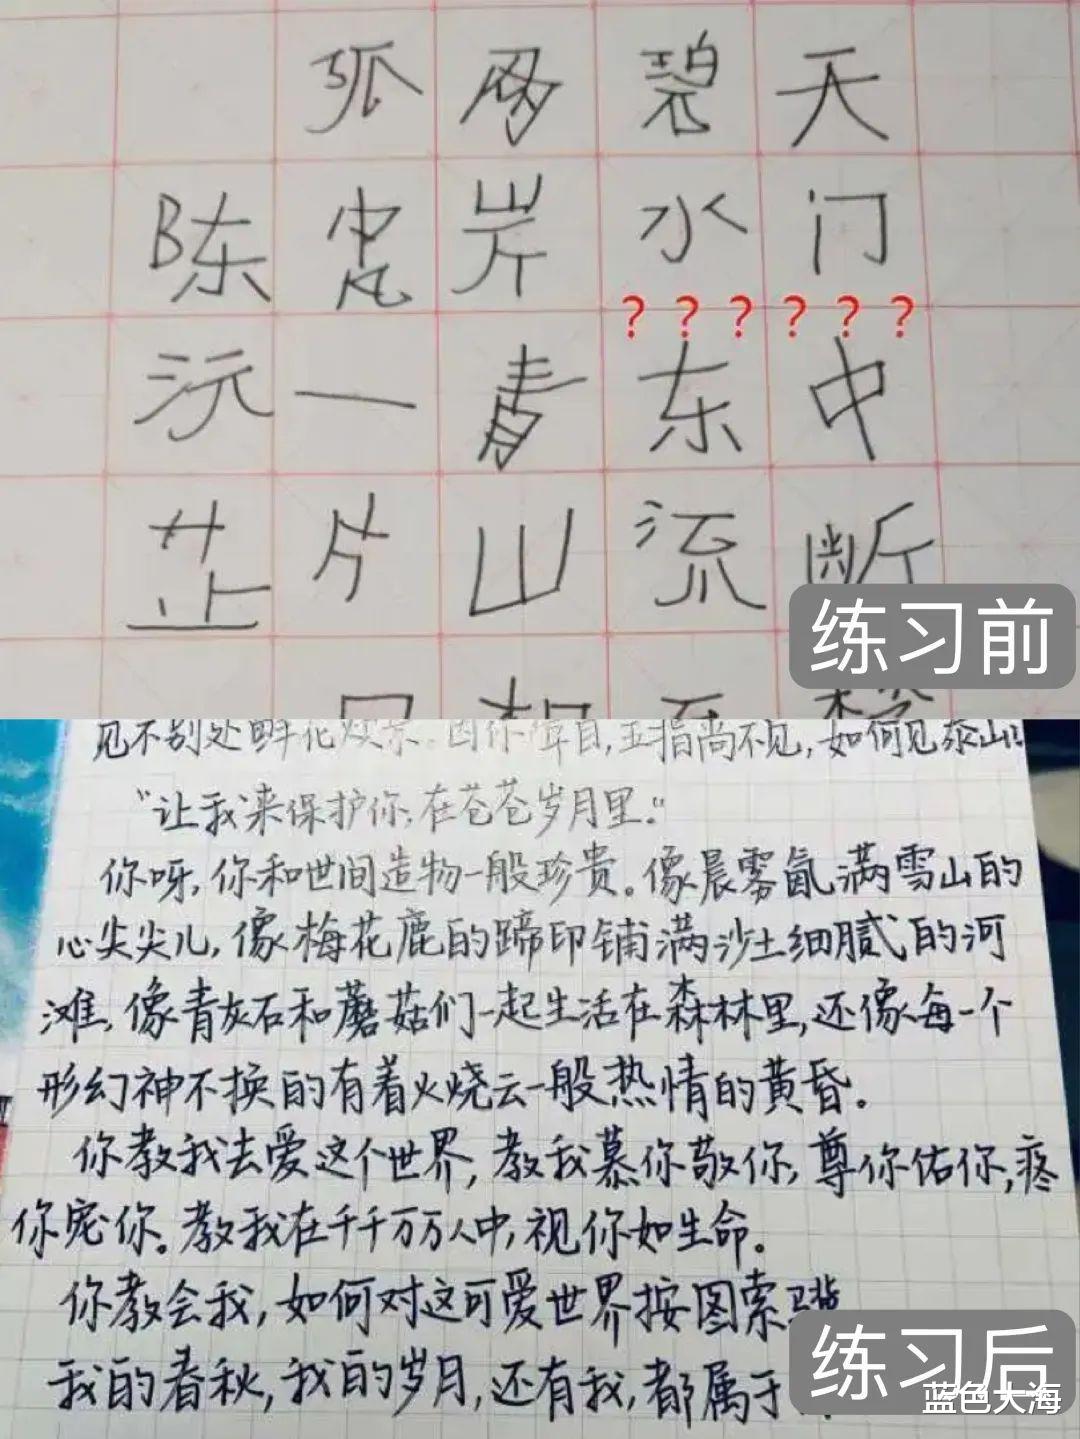 天门中断楚
碧水东流至
两岸青山相
孤帆一片日
陈沅芷
？？？？？？
练习前
见不别处鲜花焕景。因你障目,五指尚不见,如何见泰山!
“让我来保护你,在苍苍岁月里。”
你呀,你和世间造物一般珍贵。像晨雾氤满雪山的
心尖尖儿,像梅花鹿的蹄印铺满沙土细腻的河
滩,像青灰石和蘑菇们一起生活在森林里,还像每一个
形幻神不换的有着火烧云一般热情的黄昏。
你教我去爱这个世界,教我慕你敬你,尊你佑你,疼
你宠你。教我在千千万万人中,视你如生命。
你教会我,如何对这可爱世界按图索骥
我的春秋,我的岁月,还有我,都属于
练习后
蓝色大海